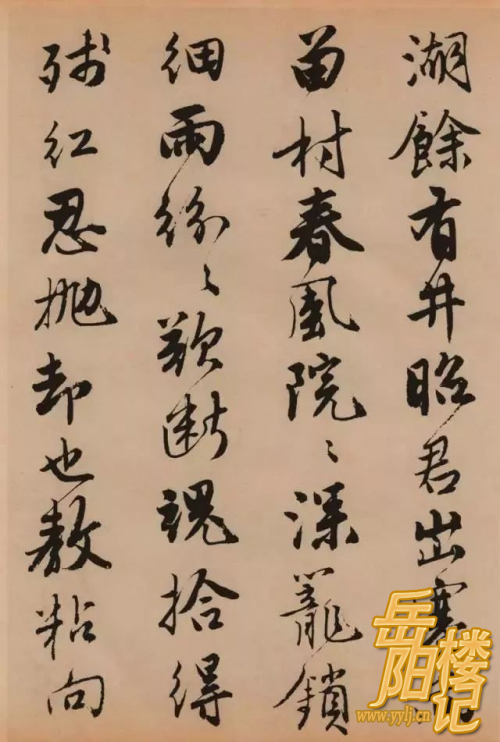 湖餘有井昭君出塞
留村春風院〻深籠鎖
細雨紛〻欲斷魂拾得
殘紅忍抛却也教粘向
岳阳楼记
www.yylj.cn